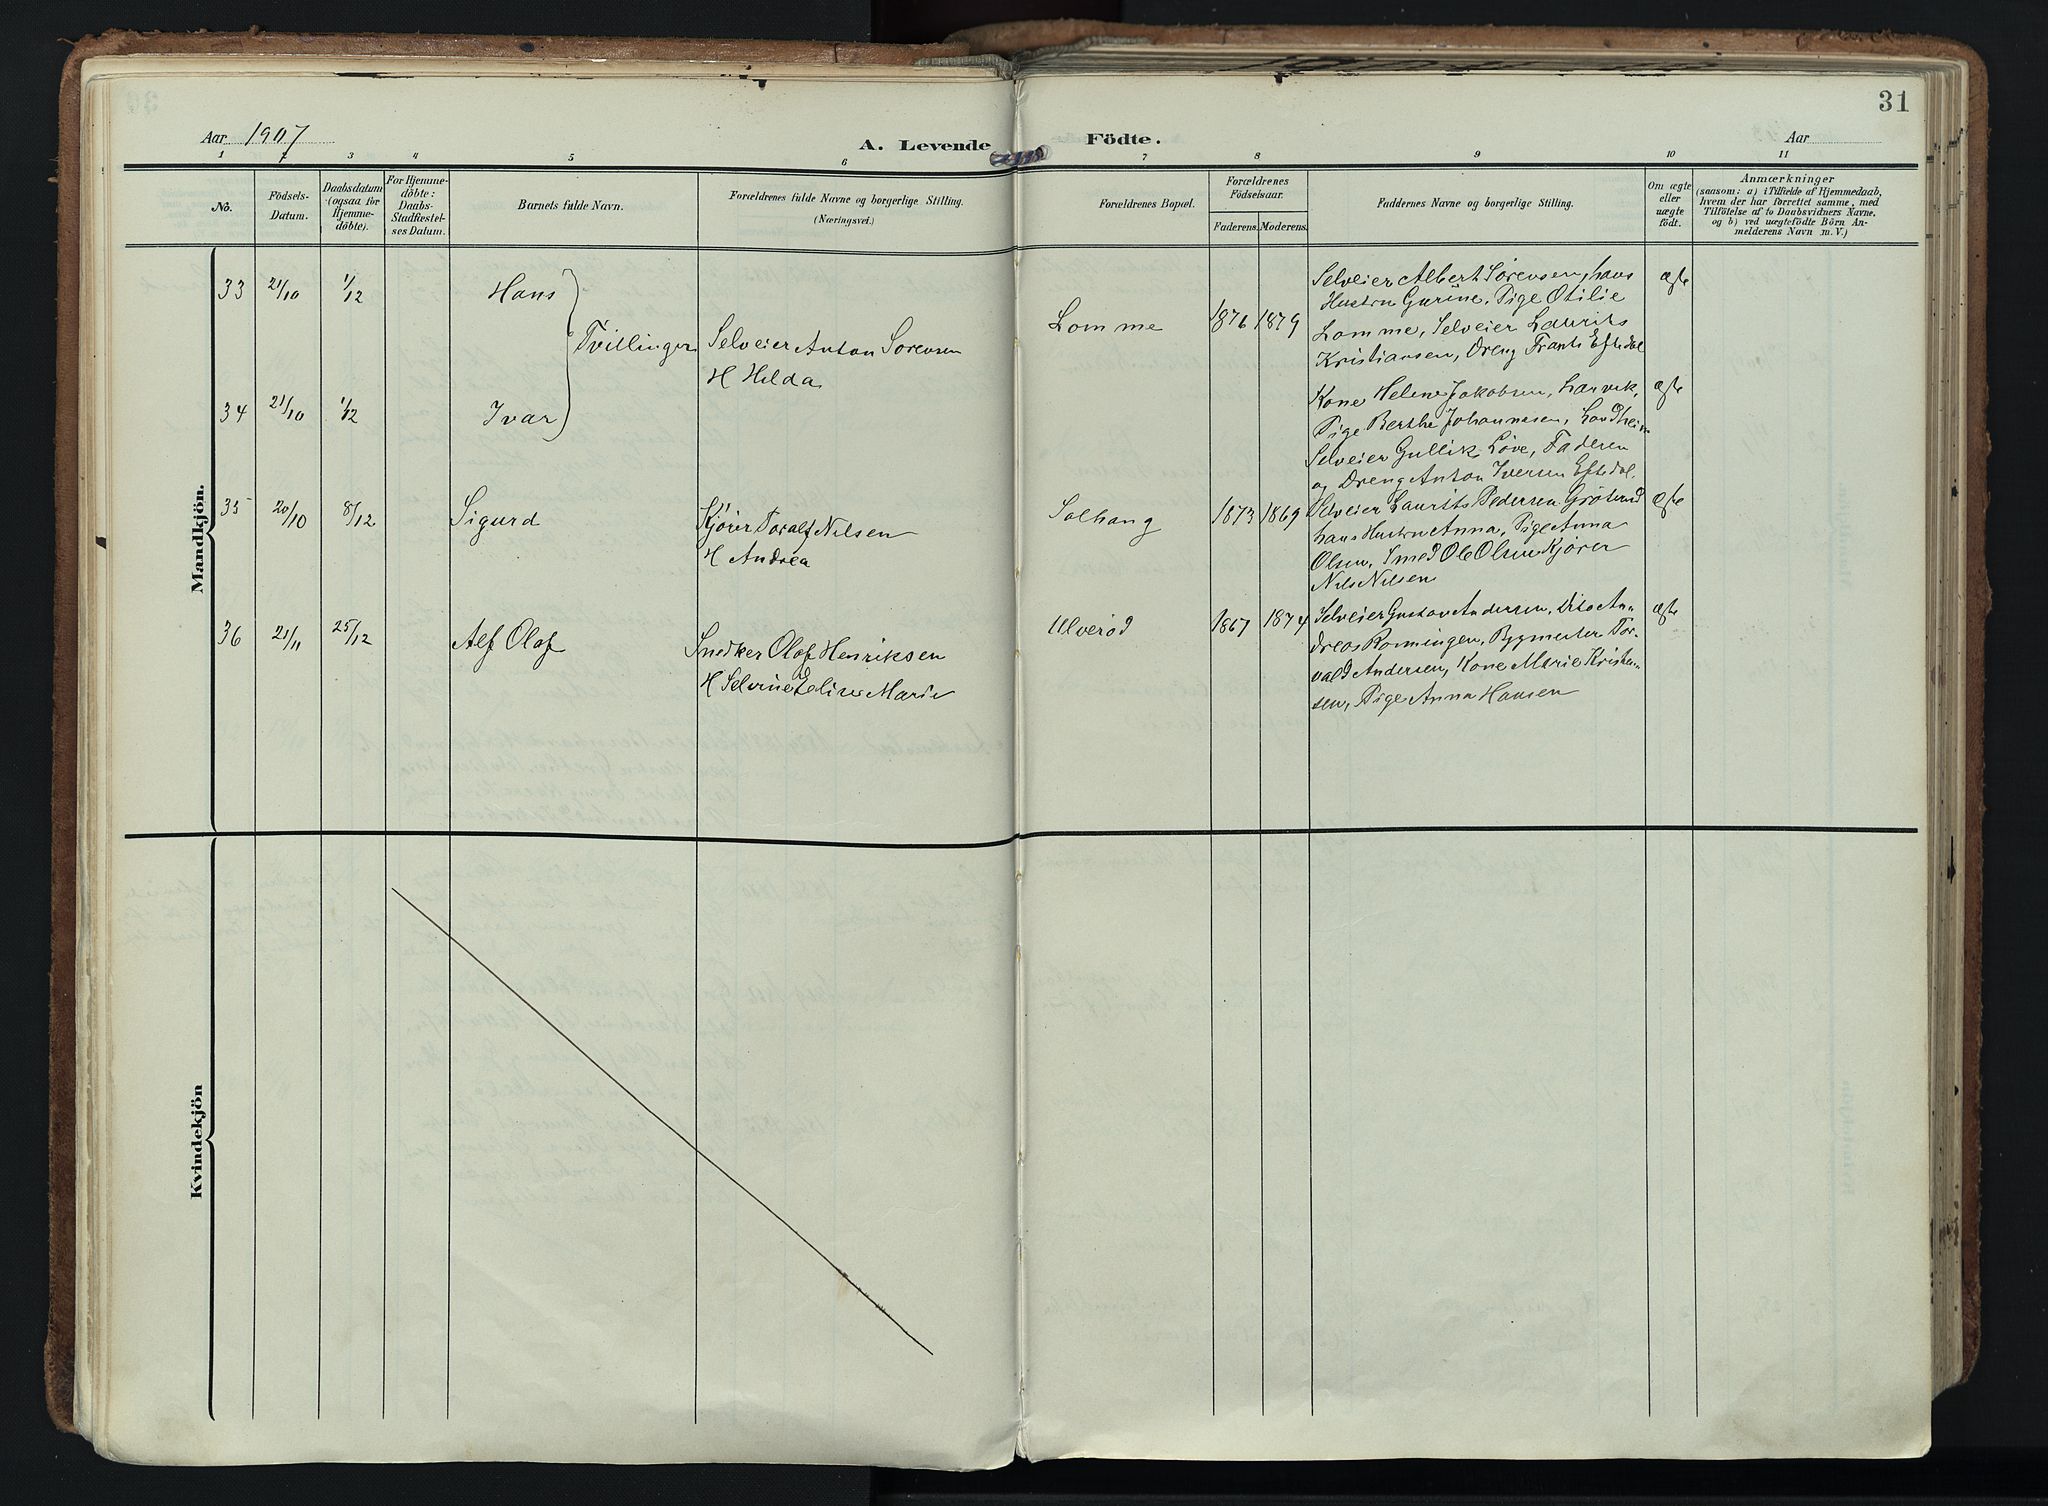 31
Aar 1907
A. Levende
Födte.
Aar
1 2 3 4 5 6 7 8 9 10 11
No.
Födsels-
Datum.
Daabsdatum
(ogsaa for
Hjemme-
döbte).
For Hjemme-
döbte:
Daabs-
Stadfæstel-
ses Datum.
Barnets fulde Navn.
Forældrenes fulde Navne og borgerlige Stilling.
(Næringsvei.)
Forældrenes Bopæl.
Forældrenes
Födselsaar.
Faderens. Moderens.
Faddernes Navne og borgerlige Stilling.
Om ægte
eller
uægte
födt.
Anmærkninger
(saasom: a) i Tilfælde af Hjemmedaab,
hvem der har forrettet samme, med
Tilföielse af to Daabsvidners Navne,
og b) ved uægtefödte Börn An-
melderens Navn m. V.)
Mandkjön.
33 21/10 1/12 Hans
Tvillinger
Selveier Anton Sørensen
H Hilda
Lomme 1876 1879
Selveier Albert Sørensen, hans
Hustru Gurine, Pige Otilie
Lomme, Selveier Laurits
Kristiansen, Dreng Frants Eftedal
ægte
34 21/10 1/12 Ivar
Kone Helene Jakobsen, Larvik,
Pige Berthe Johannesen, Landheim
Selveier Gullik Løve, Faderen
og Dreng Anton Iversen Eftedal.
ægte
35 20/10 8/12 Sigurd
Kjører Toralf Nilsen
H Andrea
Solhaug 1873 1869
Selveier Laurits Pedersen
hans Hustru Anna, Pige Anna
Olsen, Smed Ole Olsen Kjører
Nils Nilsen
ægte
36 21/11 25/12 Alf Olaf
Snedker Olaf Henriksen
H Selvine Elise Marie
Ulverød 1867 1874
Selveier Gustav Andersen, Dito An-
dreas Ronningen, Bygmester Tor-
vald Andersen, Kone Marie Kristen-
sen, Pige Anna Hansen
ægte
Kvindekjön